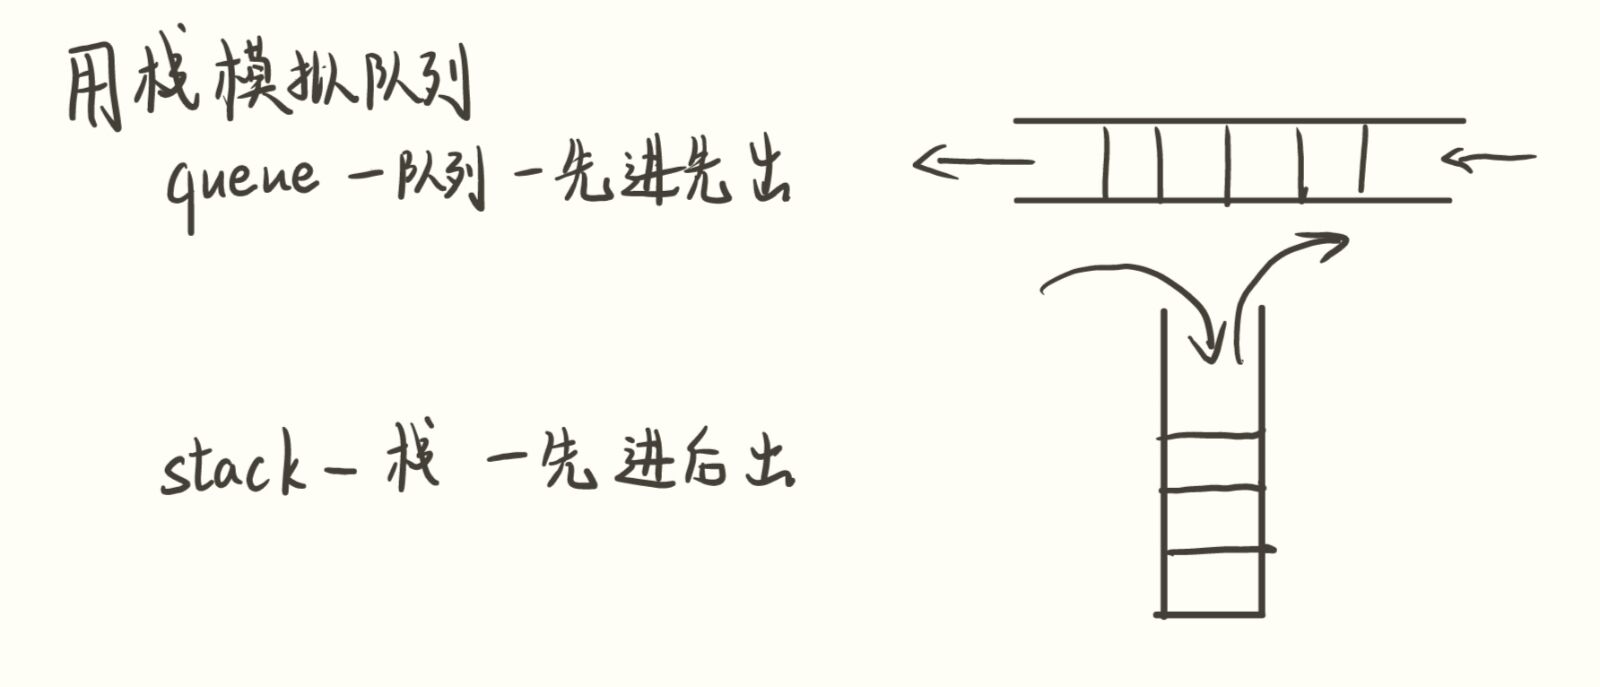 用栈模拟队列
queue — 队列 — 先进先出
stack — 栈 — 先进后出